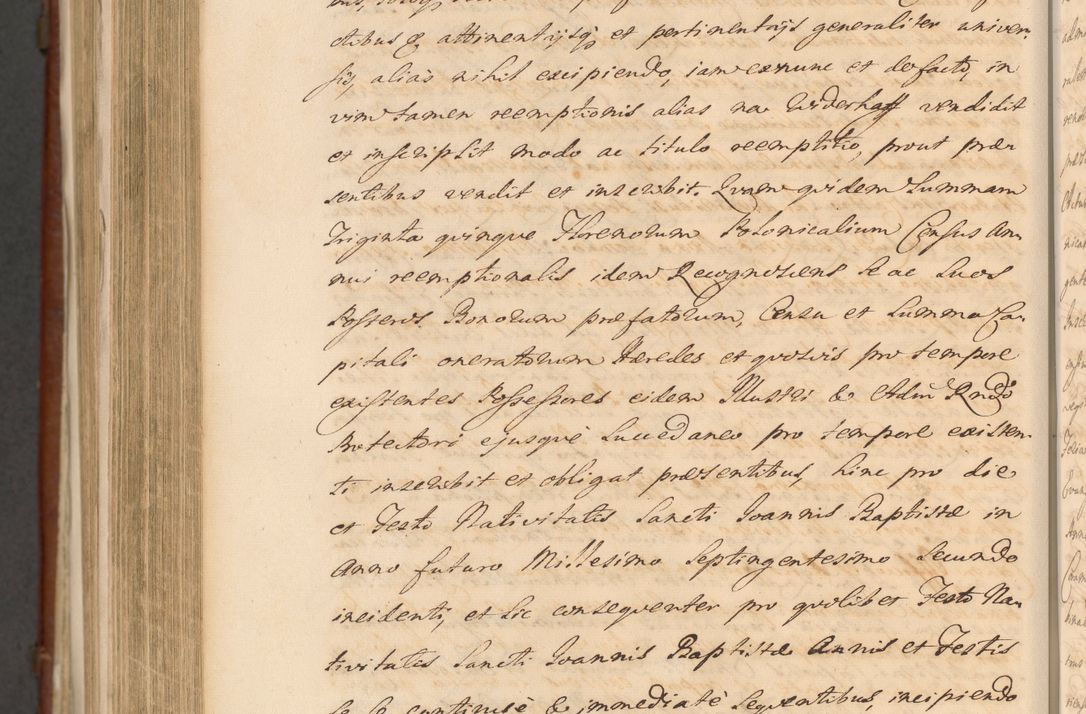 ctibus & attinentijsq; et pertinentijs generaliter univer,
sis, alias nihil excipiendo, iam exnunc et de facto, in
vim tamen reemptionis alias na Widerkaff vendidit
et inscripsit modo ac titulo reemptitio, prout præ,
sentibus vendit et inscribit. Quam quidem Summam
Triginta quinque Florenorum Polonicalium Census An,
nui reemptionalis idem Recognoscens se ac suos
Posteros. Bonorum præfatorum, Censu et Summa Ca,
pitali oneratorum Hæredes et quosvis pro tempore
existentes Possessores eidem Illustri & Adm Rndo
Protectori ejusque Succedaneo pro tempore existen,
ti inscribit et obligat præsentibus, hinc pro die
et Festo Nativitatis Sancti Joannis Baptistæ in
Anno futuro Millesimo Septingentesimo Secundo
incidenti, et sic consequenter pro quolibet Festo Na,
tivitatis Sancti Joannis Baptistæ Annis et Festis
se se continue & immediate sequentibus, incipiendo